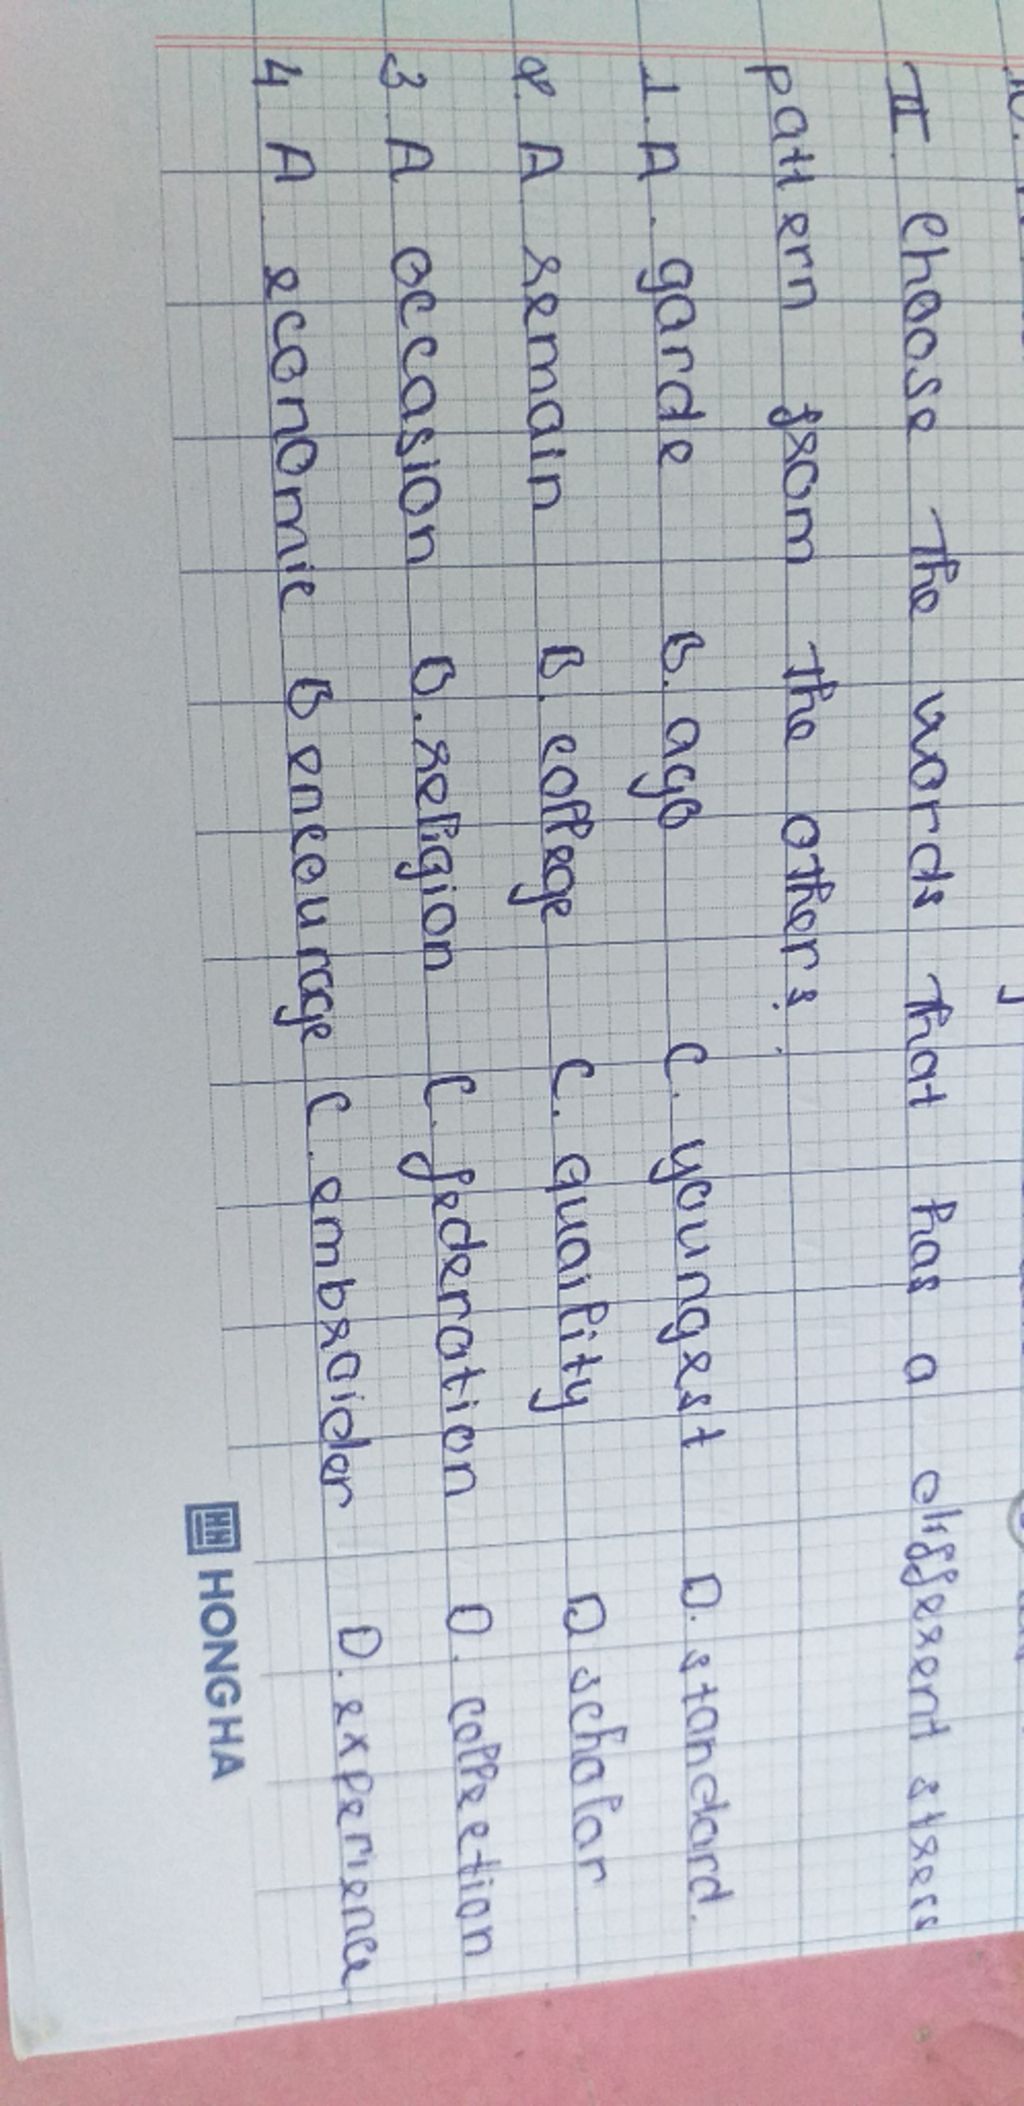 II. Choose the words that has a different stress
pattern from the others.
1. A. garde B. ago C. youngest D. standard.
2. A remain B. college C. quaility D scholar
3 A occasion B. religion C. federation D. collection
4 A economic B encourage C. embroider D. experience
HONG HA